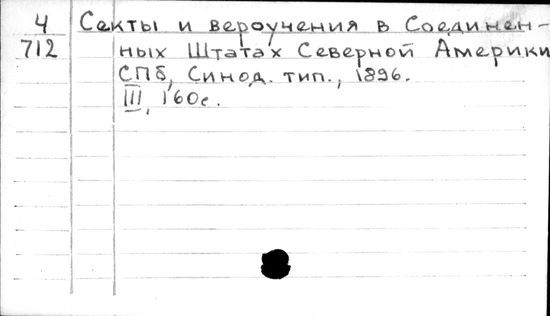 4 Секты и вероучения в Соединен-
712 ных Штатах Северной Америки
СПб, Синод. тип., 1896.
III, 160с.